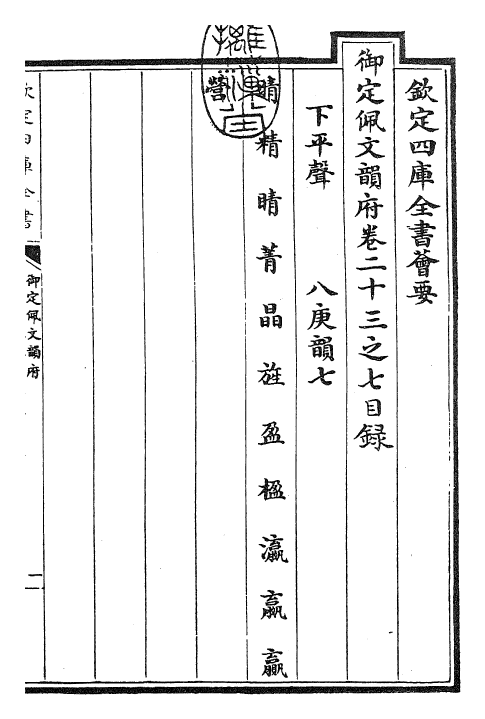 欽定四庫全書薈要
御定佩文韻府卷二十三之七目録
下平聲 八庚韻七
晴 精 睛 菁 晶 旌 盈 楹 瀛 嬴 贏
營
欽定四庫全書
御定佩文韻府